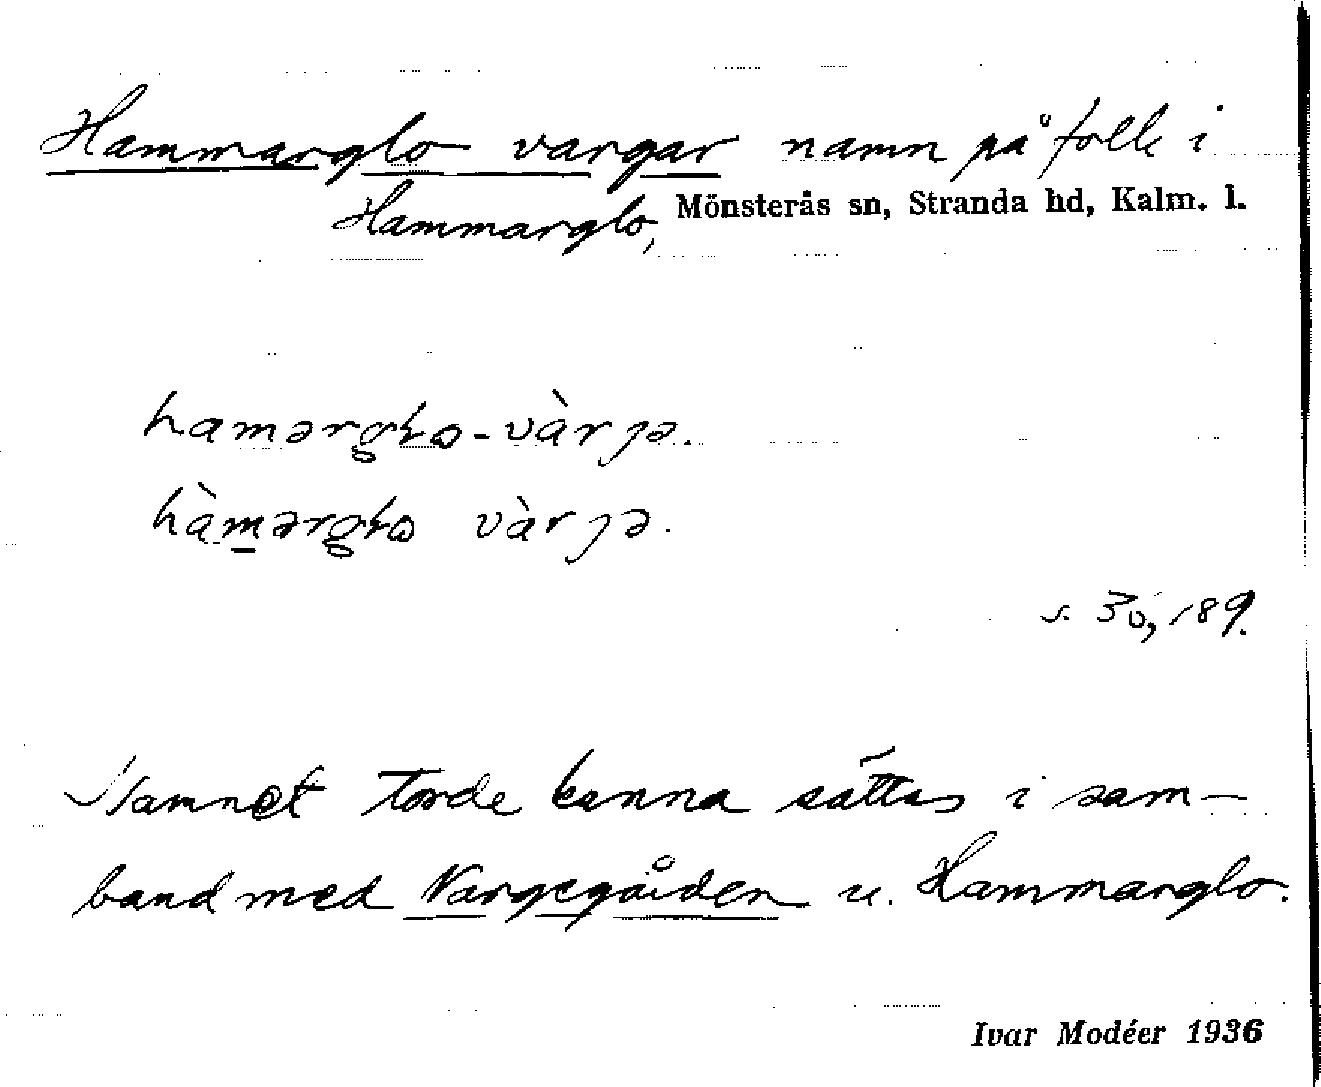 Hammarglo vargar namn på folk i
Hammarglo, Mönsterås sn, Stranda hd, Kalm. l.
hamərgɬo-vàrjə.
hàmərgɬo vàrjə.
s. 30, 189.
Namnet torde kunna sättas i sam-
band med Vargegården u. Hammarglo.
Ivar Modéer 1936